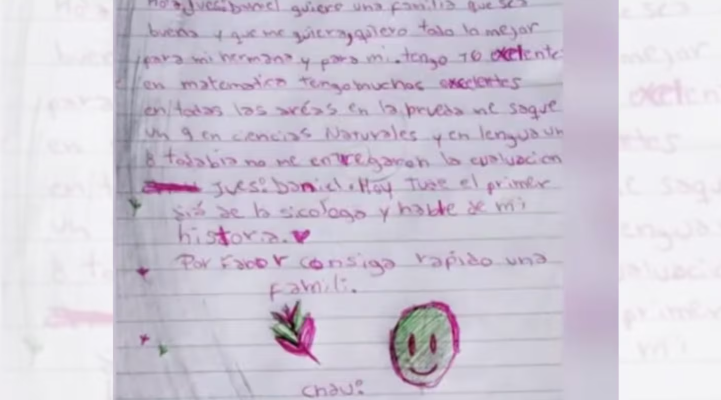 Juesi Daniel quiere una familia que sea
buena y que me quiera, quiero todo lo mejor
para mi hermana y para mi. tengo 10 exelente
en matematica tengo muchos exelentes
en todas las areas en la prueba me saque
un 9 en ciencias Naturales y en lengua un
8 todabia no me entregaron la evaluacion
Juesi Daniel. Hoy Tuve el primer
dia de la sicologa y hable de mi
historia.
Por Fabor consiga rapido una
famili.
chau